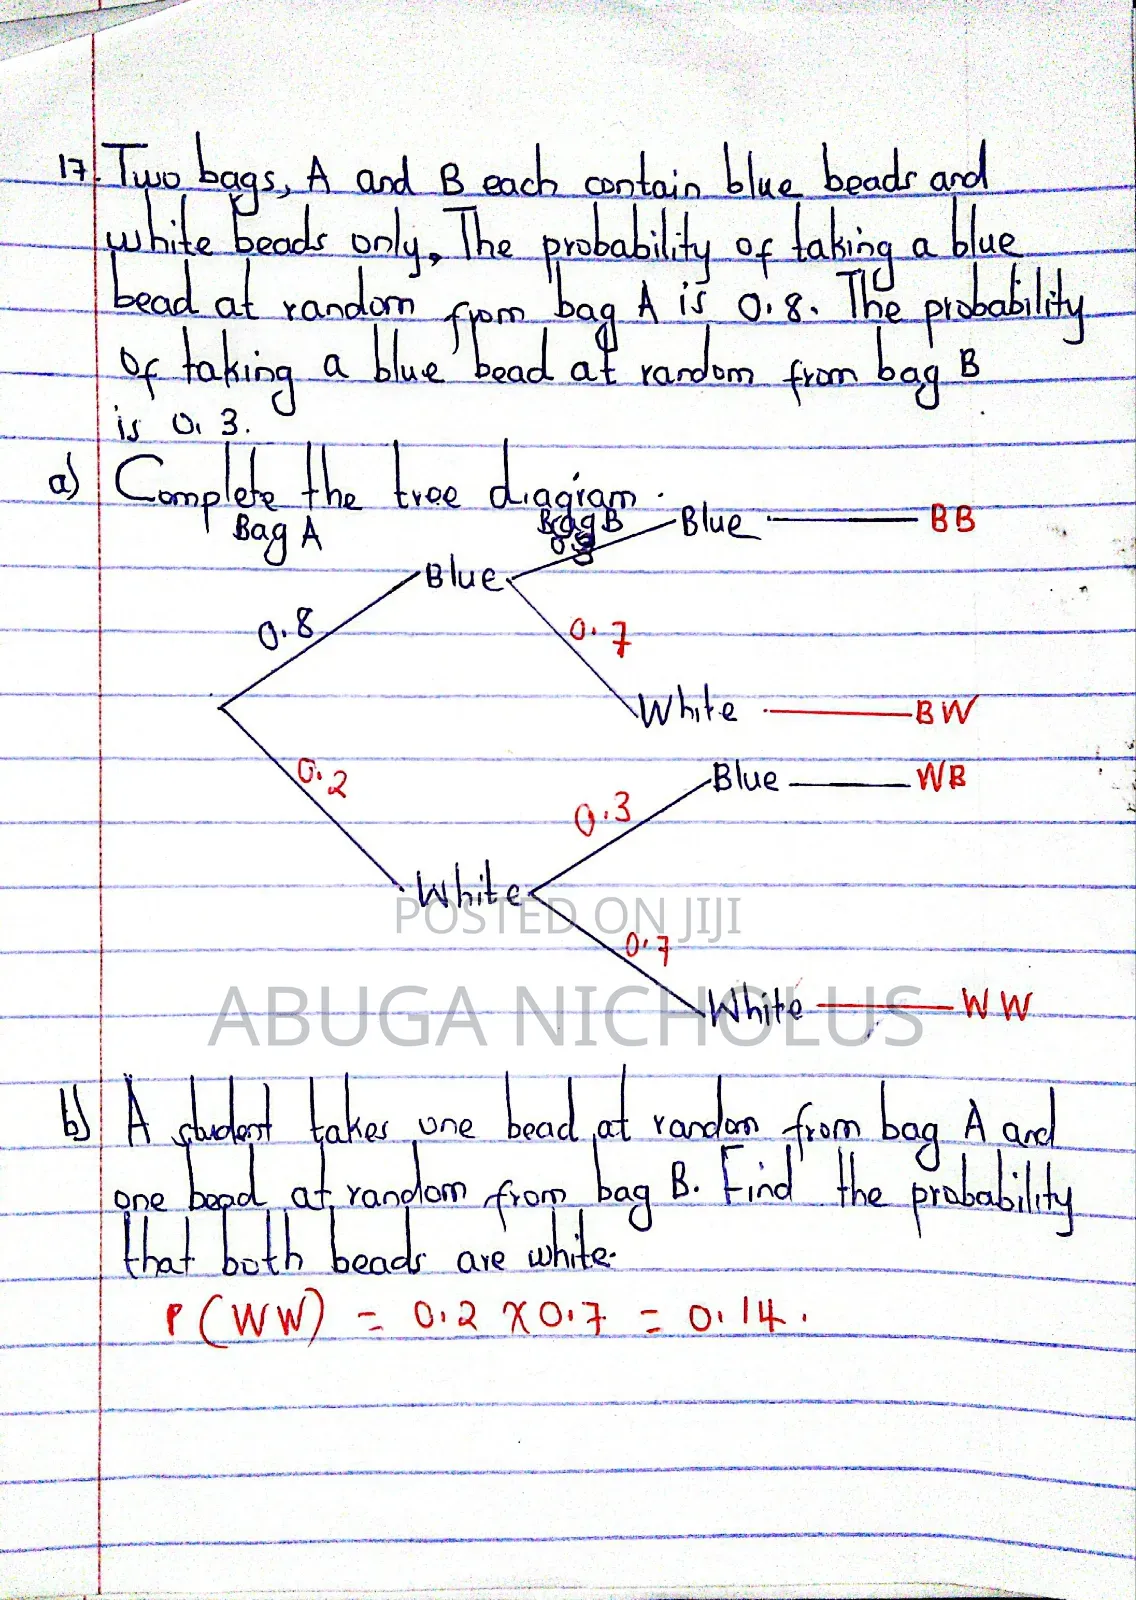 17. Two bags, A and B each contain blue beads and
white beads only, The probability of taking a blue
bead at random from bag A is 0.8. The probability
of taking a blue bead at random from bag B
is 0.3.
a) Complete the tree diagram.
Bag A Bag B
Blue BB
0.3
Blue
0.8
0.7
White BW
0.2
Blue WB
0.3
White
POSTED ON JIJI
0.7
ABUGA NICHOLUS
White WW
b) A student takes one bead at random from bag A and
one bead at random from bag B. Find the probability
that both beads are white.
P(WW) = 0.2 X 0.7 = 0.14.